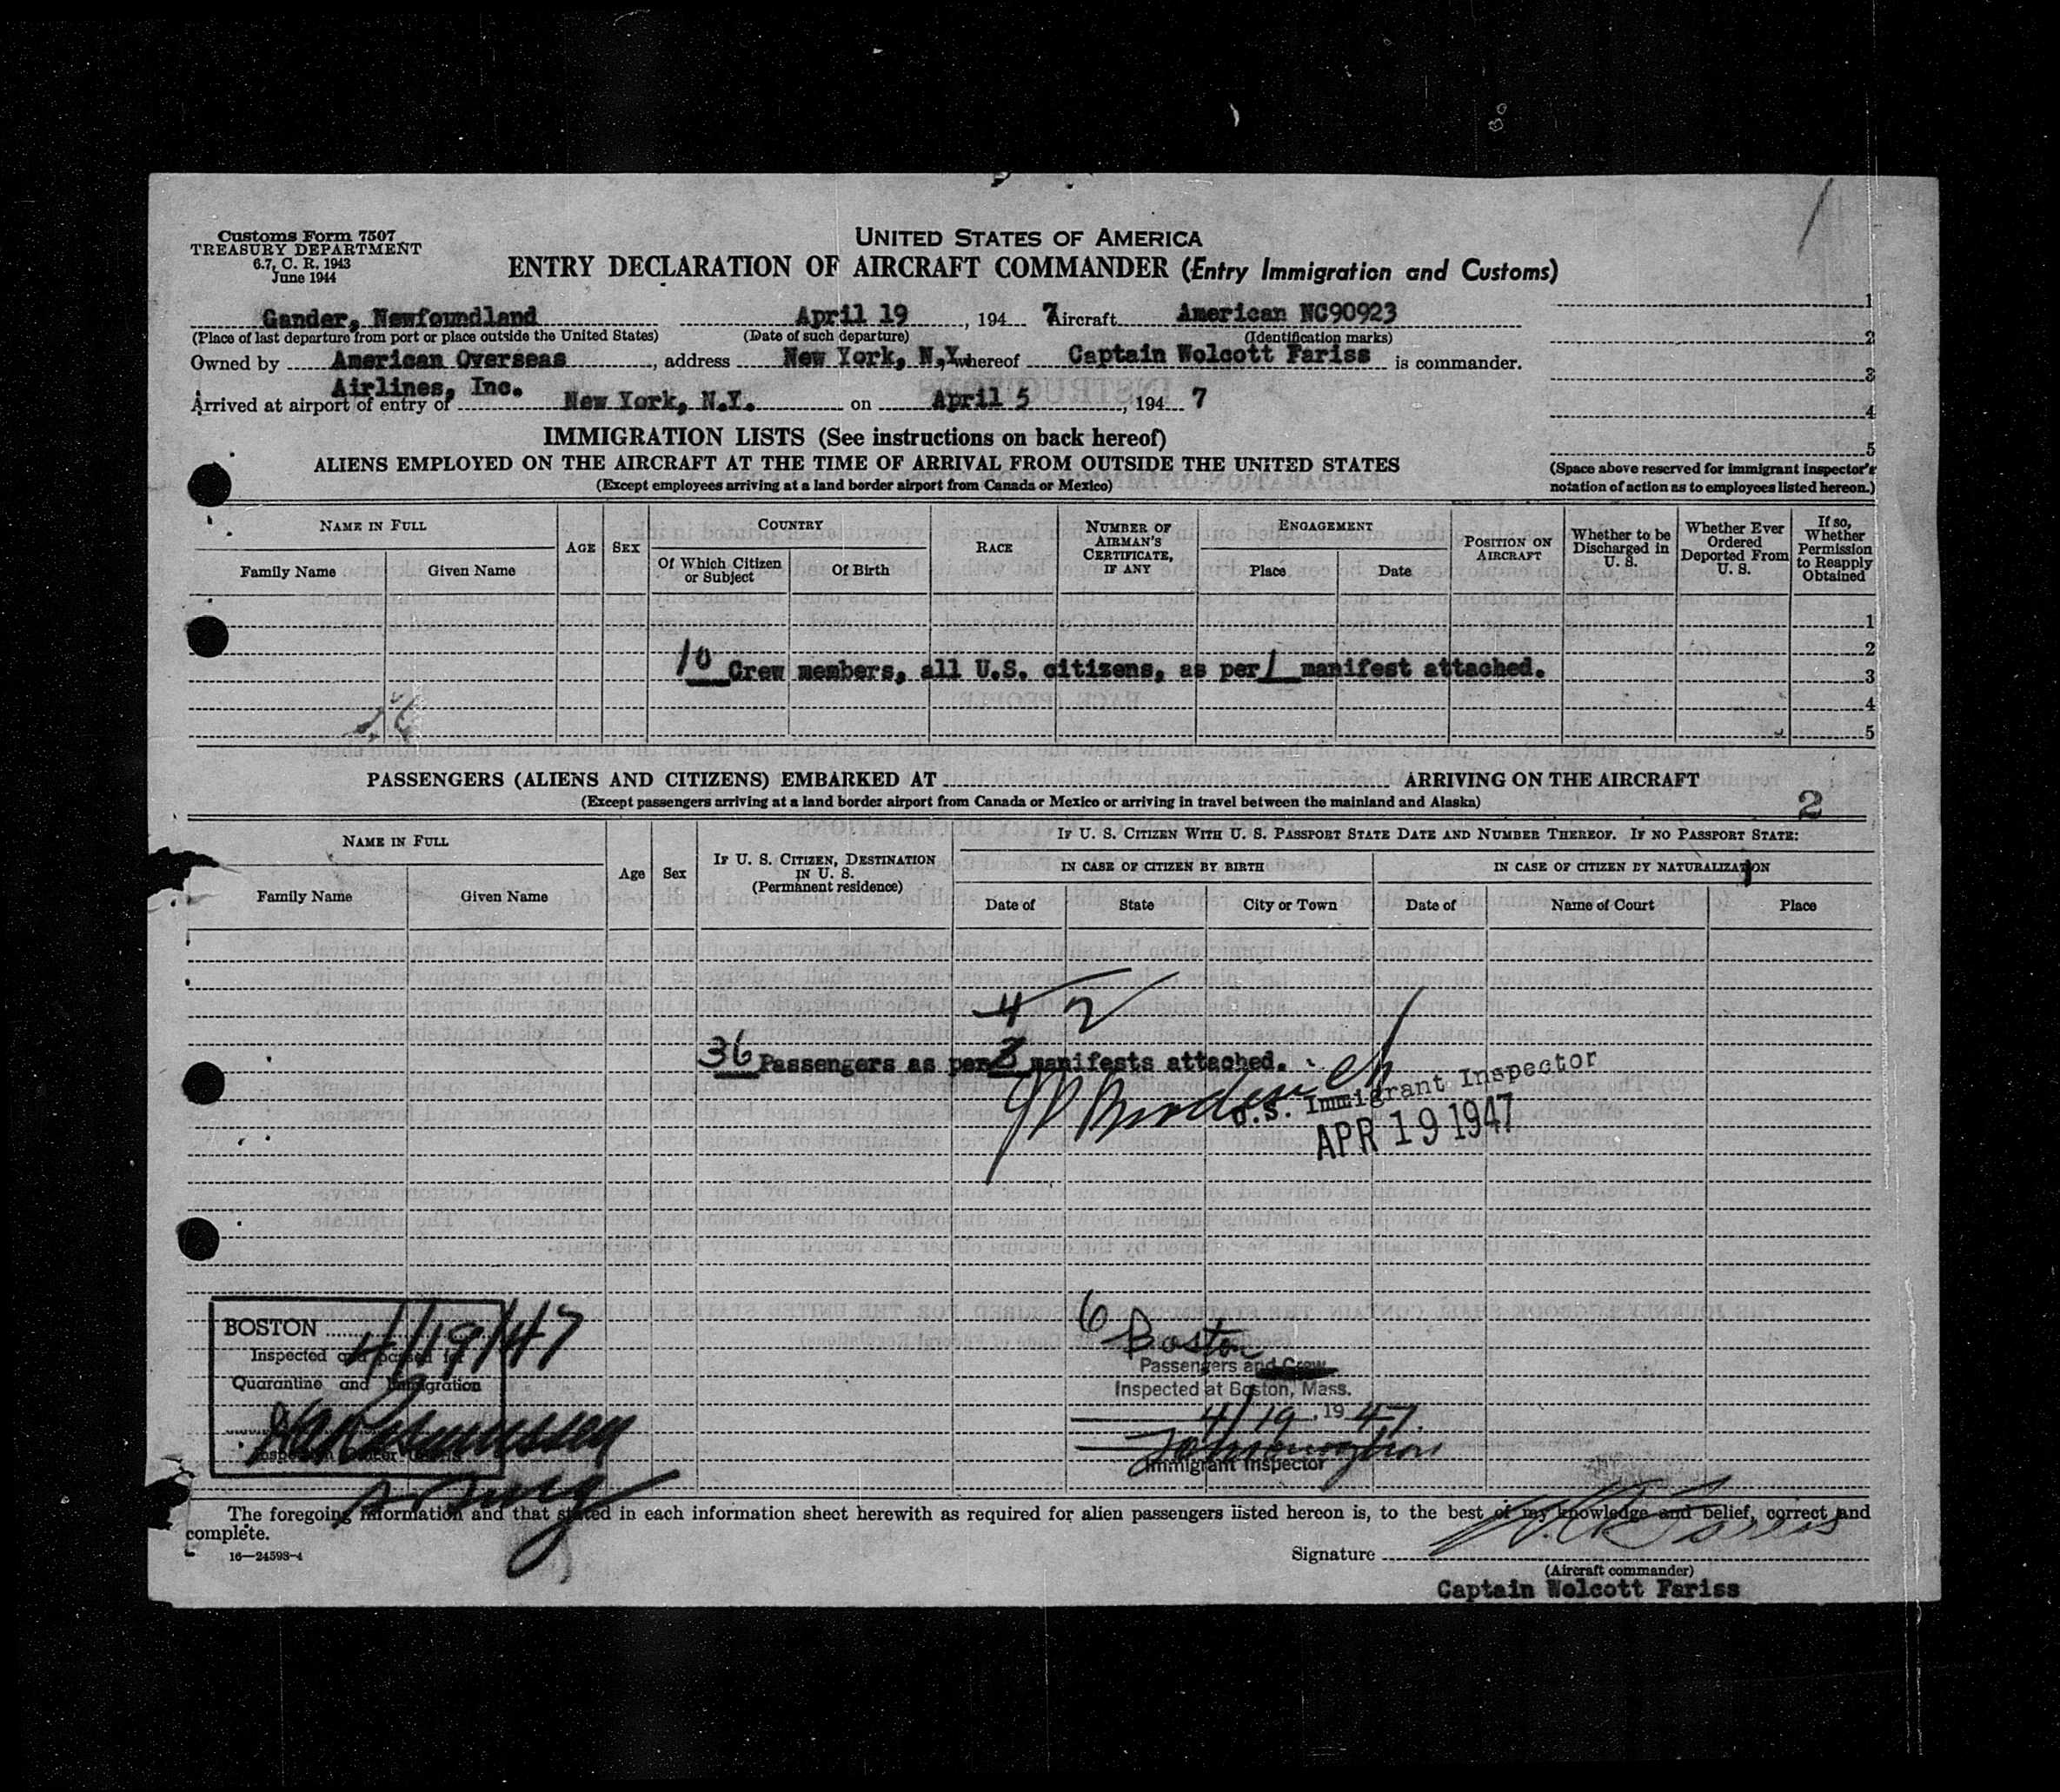 Customs Form 7507
TREASURY DEPARTMENT
6.7, C. R. 1943
June 1944
UNITED STATES OF AMERICA
ENTRY DECLARATION OF AIRCRAFT COMMANDER (Entry Immigration and Customs)
Gander, Newfoundland April 19, 194 7 Aircraft American NC90923
(Place of last departure from port or place outside the United States) (Date of such departure) (Identification marks)
Owned by American Overseas, address New York, N.Y. whereof Captain Wolcott Fariss is commander.
Airlines, Inc.
Arrived at airport of entry of New York, N.Y. on April 5, 194 7
1
2
3
4
5
(Space above reserved for immigrant inspector's
notation of action as to employees listed hereon.)
IMMIGRATION LISTS (See instructions on back hereof)
ALIENS EMPLOYED ON THE AIRCRAFT AT THE TIME OF ARRIVAL FROM OUTSIDE THE UNITED STATES
(Except employees arriving at a land border airport from Canada or Mexico)
NAME IN FULL
Family Name Given Name
AGE
SEX
COUNTRY
Of Which Citizen or Subject
Of Birth
RACE
NUMBER OF AIRMAN'S CERTIFICATE, IF ANY
ENGAGEMENT
Place Date
POSITION ON AIRCRAFT
Whether to be Discharged in U. S.
Whether Ever Ordered Deported From U. S.
If so, Whether Permission to Reapply Obtained
1
2
10 Crew members, all U.S. citizens, as per 1 manifest attached.
3
4
5
PASSENGERS (ALIENS AND CITIZENS) EMBARKED AT ARRIVING ON THE AIRCRAFT
(Except passengers arriving at a land border airport from Canada or Mexico or arriving in travel between the mainland and Alaska)
2
NAME IN FULL
Family Name Given Name
Age
Sex
IF U. S. CITIZEN, DESTINATION IN U. S.
(Permanent residence)
IF U. S. CITIZEN WITH U. S. PASSPORT STATE DATE AND NUMBER THEREOF. IF NO PASSPORT STATE:
IN CASE OF CITIZEN BY BIRTH
IN CASE OF CITIZEN BY NATURALIZATION
Date of State City or Town
Date of Name of Court Place
4 2
36 Passengers as per 3 manifests attached.
U.S. Immigrant Inspector
APR 19 1947
BOSTON 4/19/47
Inspected and passed in
Quarantine and Immigration
6 Boston
Passengers and Crew
Inspected at Boston, Mass.
4/19, 19 47
Immigrant Inspector
The foregoing information and that stated in each information sheet herewith as required for alien passengers listed hereon is, to the best of my knowledge and belief, correct and
complete.
16—24598-4
Signature W. Fariss
(Aircraft commander)
Captain Wolcott Fariss